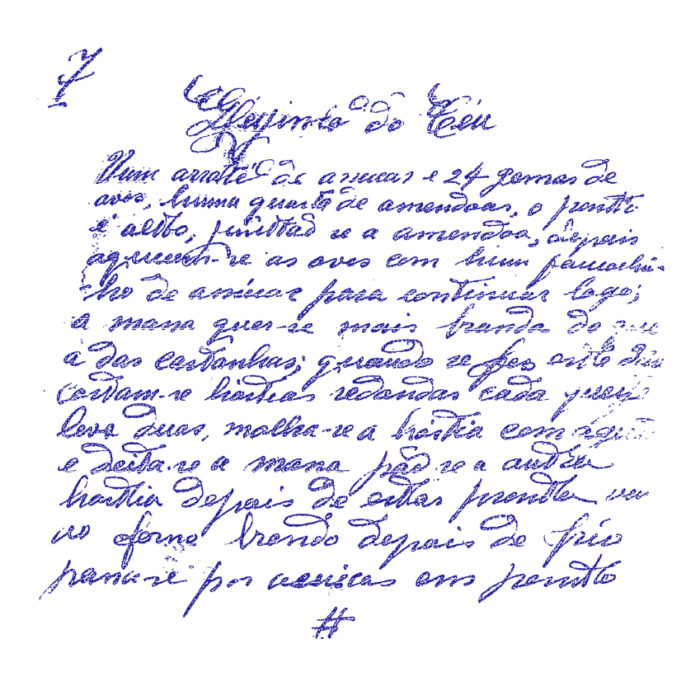 7
Queijinho do Céu
Num arratel de assucar e 24 gemas de
ovos, huma quarta de amendoas, o ponto
é alto, junta-se a amendoa, depois
aquecem-se as ovos com hum poucochi-
nho de assucar para continuar logo;
a massa quer-se mais branda do que
a das castanhas; quando se fez este doce
cortam-se hóstias redondas cada queijo
leva duas, molha-se a hóstia com agua
e deita-se a massa põe-se a outra
hostia depois de estar prompto vai
ao forno brando depois de frio
passa-se por assucar em ponto
#